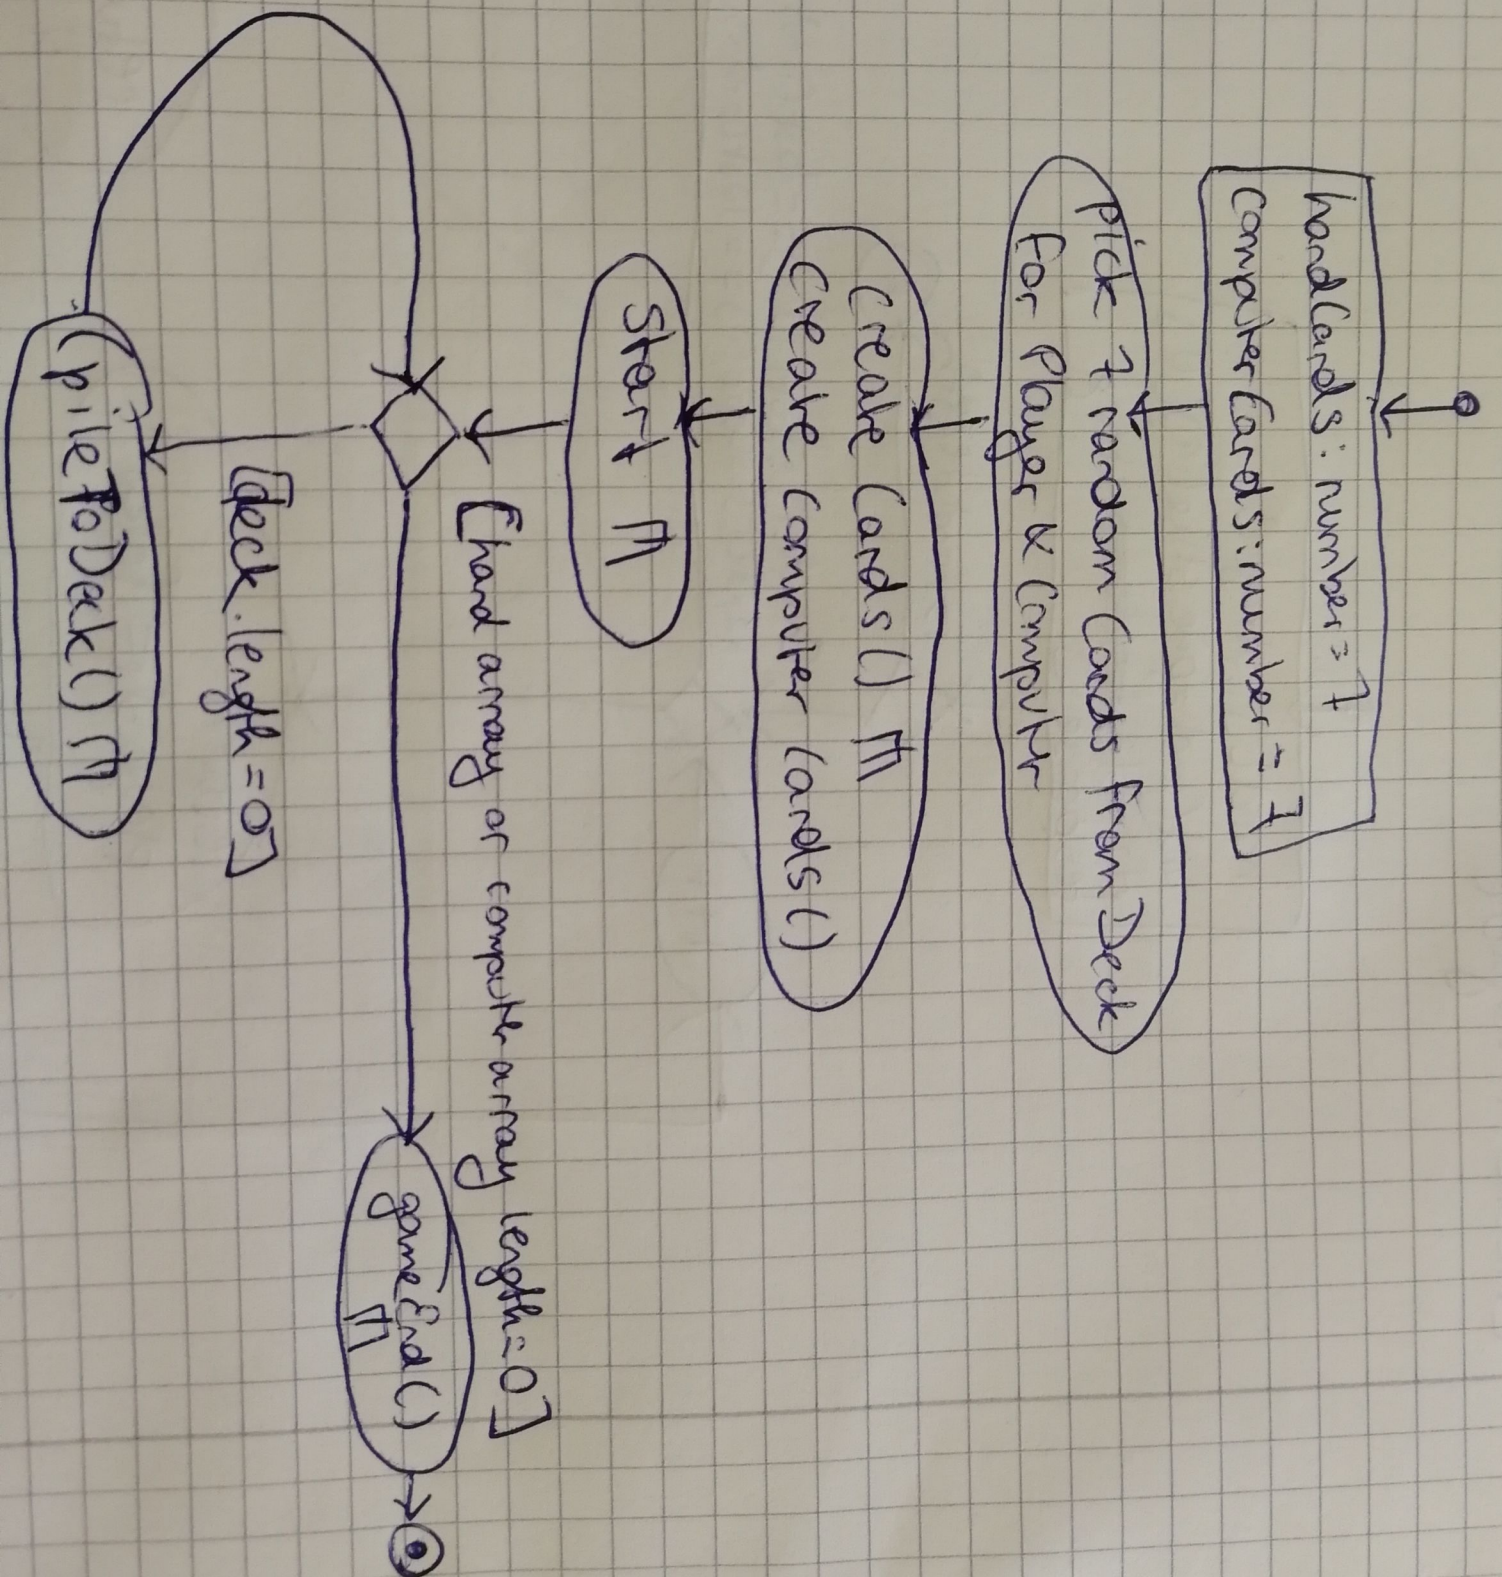 handCards: number = 7
computerCards: number = 7
pick 7 random Cards from Deck
for Player & Computer
Create Cards()
Create Computer Cards()
Start
[hand array or computer array length = 0]
gameEnd()
[deck.length = 0]
pileToDeck()